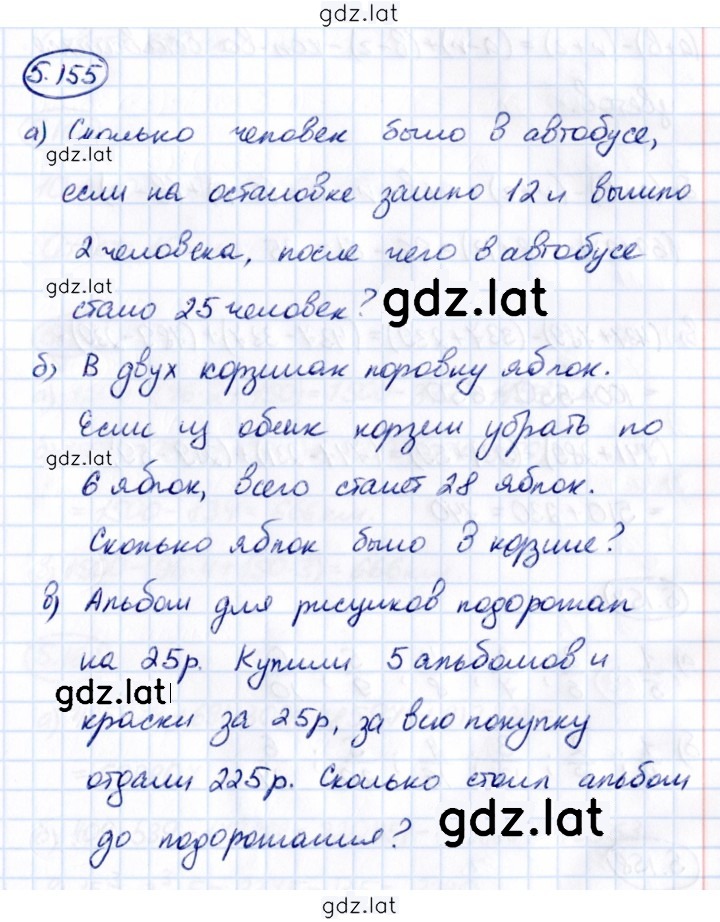 gdz.lat
5.155
а) Сколько человек было в автобусе,
gdz.lat
если на остановке зашло 12 и вышло
2 человека, после чего в автобусе
gdz.lat
стало 25 человек?
gdz.lat
б) В двух корзинах поровну яблок.
Если из обеих корзин убрать по
gdz.lat
6 яблок, всего станет 28 яблок.
Сколько яблок было в корзине?
в) Альбом для рисунков подорожал
на 25р. Купили 5 альбомов и
gdz.lat
краски за 25р, за всю покупку
отдали 225р. Сколько стоил альбом
gdz.lat
до подорожания?
gdz.lat